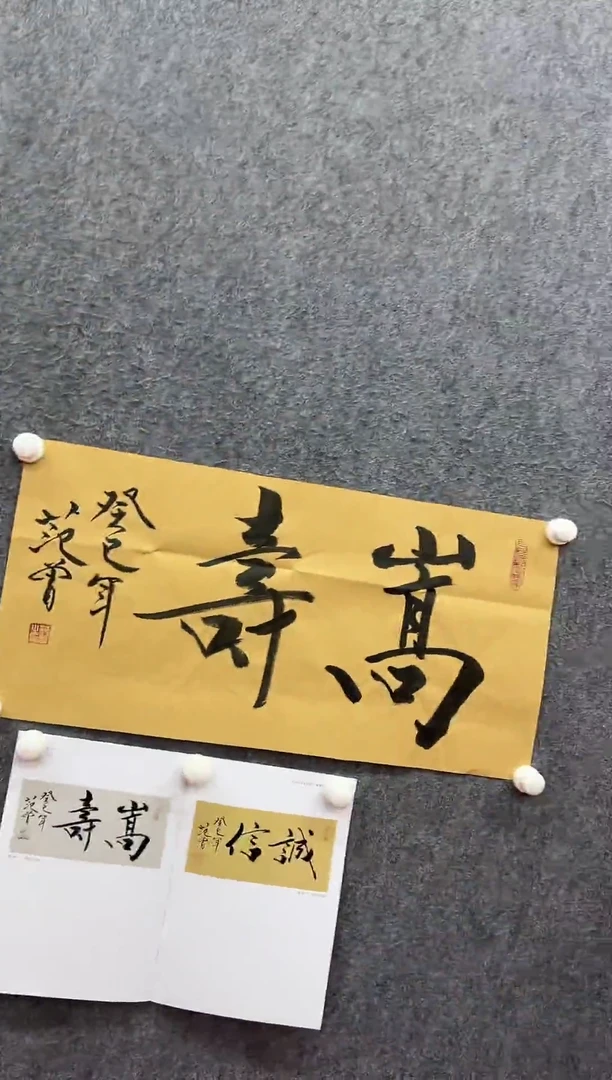 嵩壽
癸巳年
范曾
嵩壽
癸巳年
范曾
誠信
癸巳年
范曾